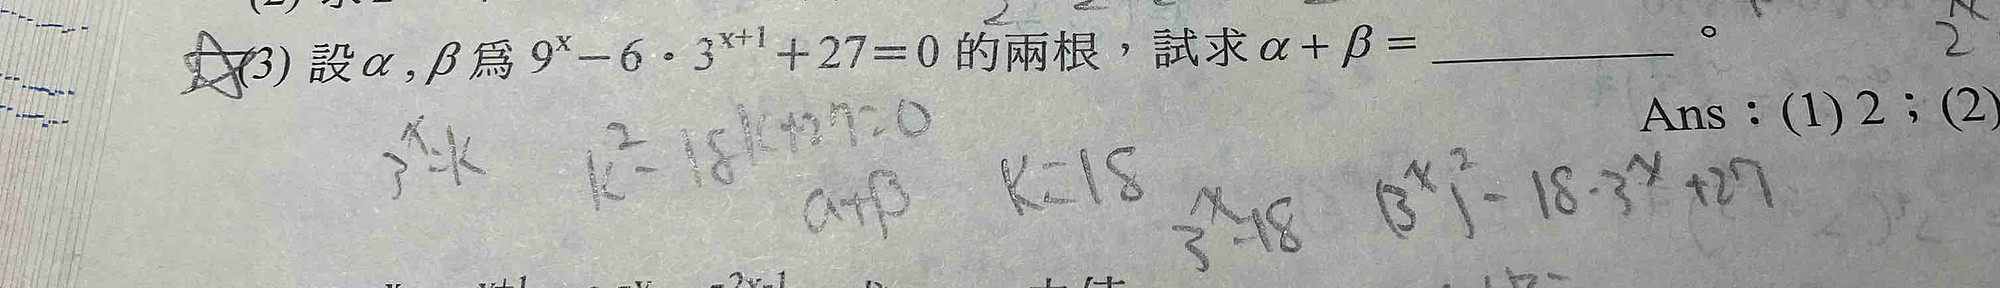 (3) 設 α , β 爲 9^x − 6 · 3^{x+1} + 27 = 0 的兩根，試求 α + β = ________。
Ans：(1) 2；(2)
3^x = k k^2 - 18k + 27 = 0
α+β k = 18 3^x = 18 (3^x)^2 - 18 · 3^x + 27